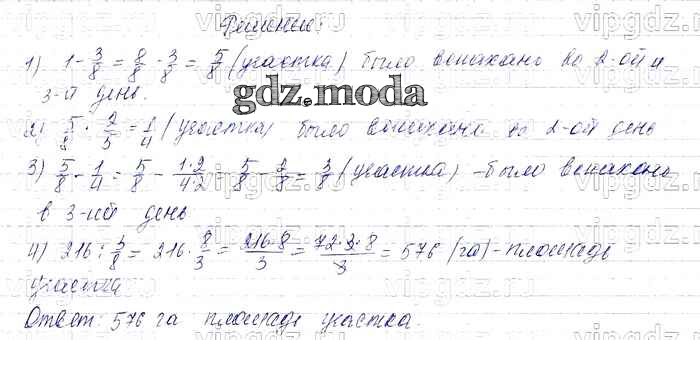 Решение:
1) 1 - 3/8 = 8/8 - 3/8 = 5/8 (участка) было вспахано во 2-ой и
3-й день.
gdz.moda
2) 5/8 · 2/5 = 1/4 (участка) было вспахано во 2-ой день
3) 5/8 - 1/4 = 5/8 - 1·2/4·2 = 5/8 - 2/8 = 3/8 (участка) - было вспахано
в 3-ий день
4) 216 : 3/8 = 216 · 8/3 = 216·8/3 = 72·3·8/3 = 576 (га) - площадь
участка
Ответ: 576 га площадь участка.